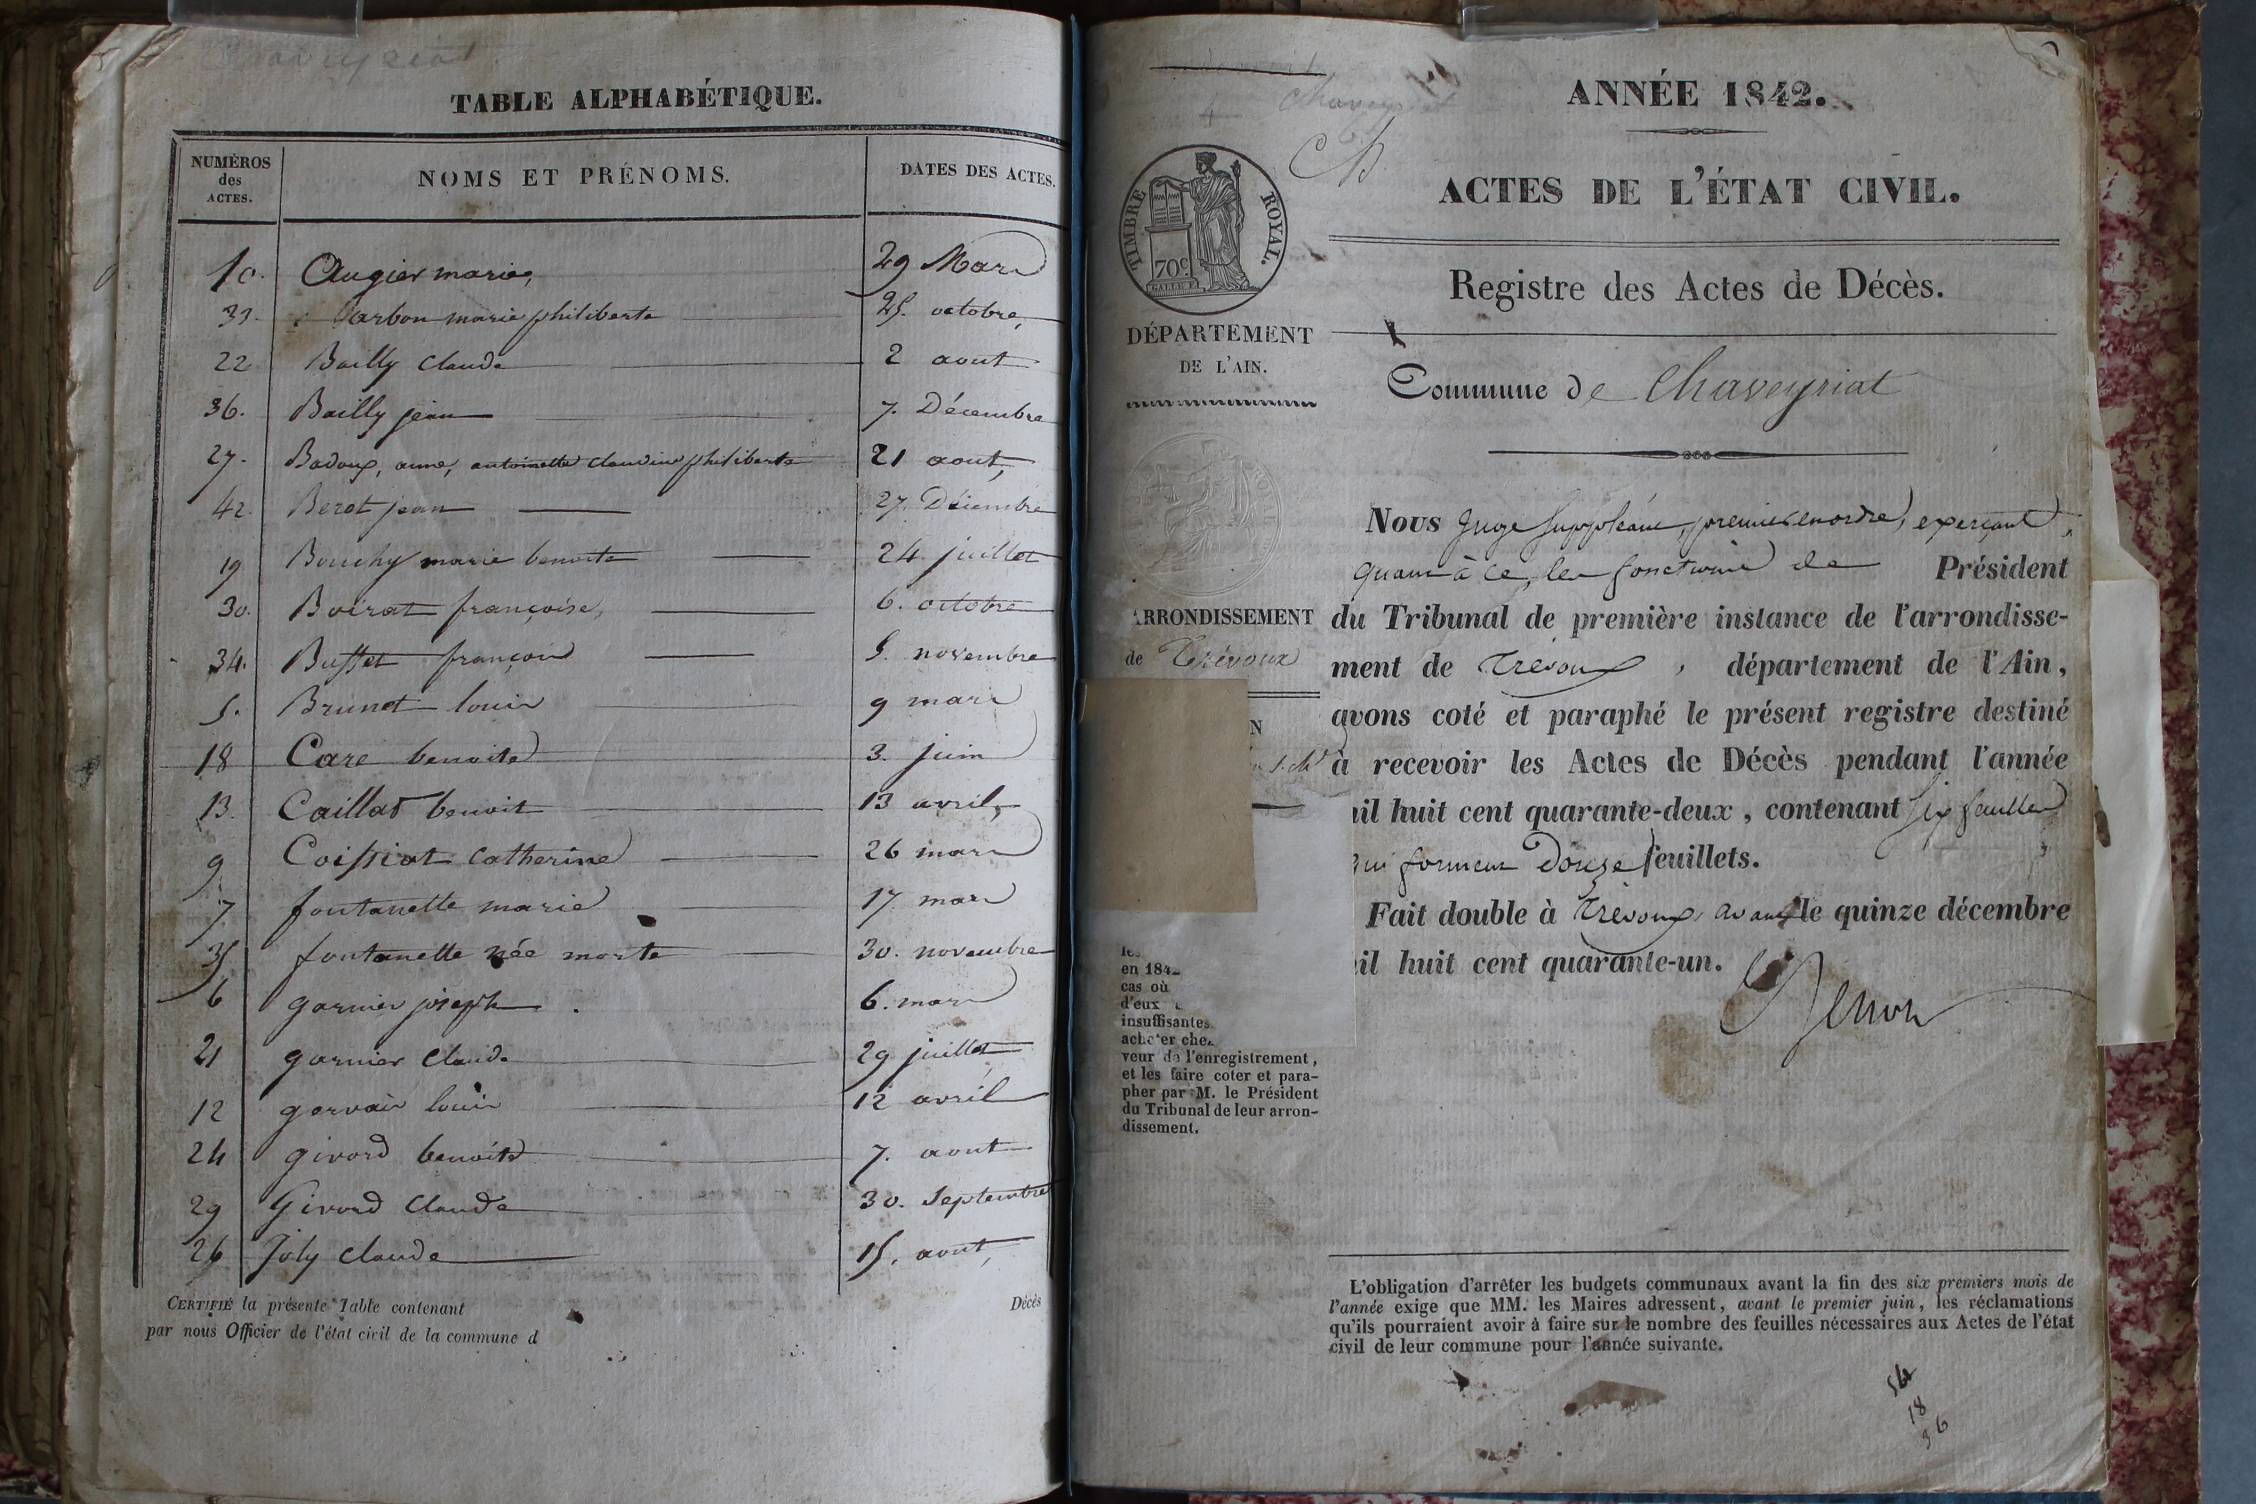 TABLE ALPHABÉTIQUE.
NUMÉROS des ACTES.
NOMS ET PRÉNOMS.
DATES DES ACTES.
10. Augier marie, 29 Mars
33. Carbon marie philiberte 25. octobre,
22 Bailly claude 2 aout
36. Bailly jean 7. Décembre
27. Badoux, anne, antoinette claudine philiberte 21 aout,
42. Berot jean 27. Décembre
19 Bouchy marie benoite 24 juillet
30. Boirat françoise, 6. octobre
34. Buffet françois 5. novembre
5. Brunet louis 9 mars
18 Care benoite 3. juin
13. Caillat benoit 13 avril,
9 Coissiat catherine 26 mars
7 fontanette marie 17 mars
35 fontanette née morte 30. novembre
6 garnier joseph 6. mars
21 garnier claude 29 juillet
12 gervais louis 12 avril
24 givord benoite 7. aout
29 Givord claude 30. Septembre
26 Joly claude 15. aout,
CERTIFIÉ la présente Table contenant
Décès
par nous Officier de l'état civil de la commune d
Chaveyriat
ANNÉE 1842.
ACTES DE L'ÉTAT CIVIL.
Registre des Actes de Décès.
TIMBRE ROYAL.
70c.
DÉPARTEMENT
DE L'AIN.
Commune de Chaveyriat
Nous Juge Suppléant, premier en ordre, exerçant,
quant à ce, les fonctions de Président
ARRONDISSEMENT
de Trévoux
du Tribunal de première instance de l'arrondisse-
ment de Trévoux, département de l'Ain,
avons coté et paraphé le présent registre destiné
à recevoir les Actes de Décès pendant l'année
mil huit cent quarante-deux, contenant six feuilles
qui forment Douze feuillets.
Fait double à Trévoux, avant le quinze décembre
mil huit cent quarante-un.
en 184
cas où
d'eux
insuffisantes
acheter chez
veur de l'enregistrement,
et les faire coter et para-
pher par M. le Président
du Tribunal de leur arron-
dissement.
L'obligation d'arrêter les budgets communaux avant la fin des six premiers mois de
l'année exige que MM. les Maires adressent, avant le premier juin, les réclamations
qu'ils pourraient avoir à faire sur le nombre des feuilles nécessaires aux Actes de l'état
civil de leur commune pour l'année suivante.
18
36